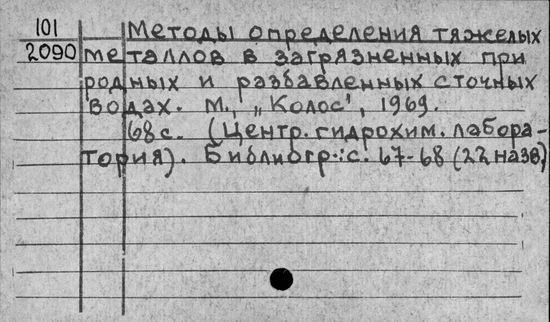 101 Методы определения тяжелых
2090 металлов в загрязненных при
родных и разбавленных сточных
водах. М., „Колос", 1969.
68 с. (Центр. гидрохим. лабора-
тория). Библиогр.: с. 67-68 (22 назв.)